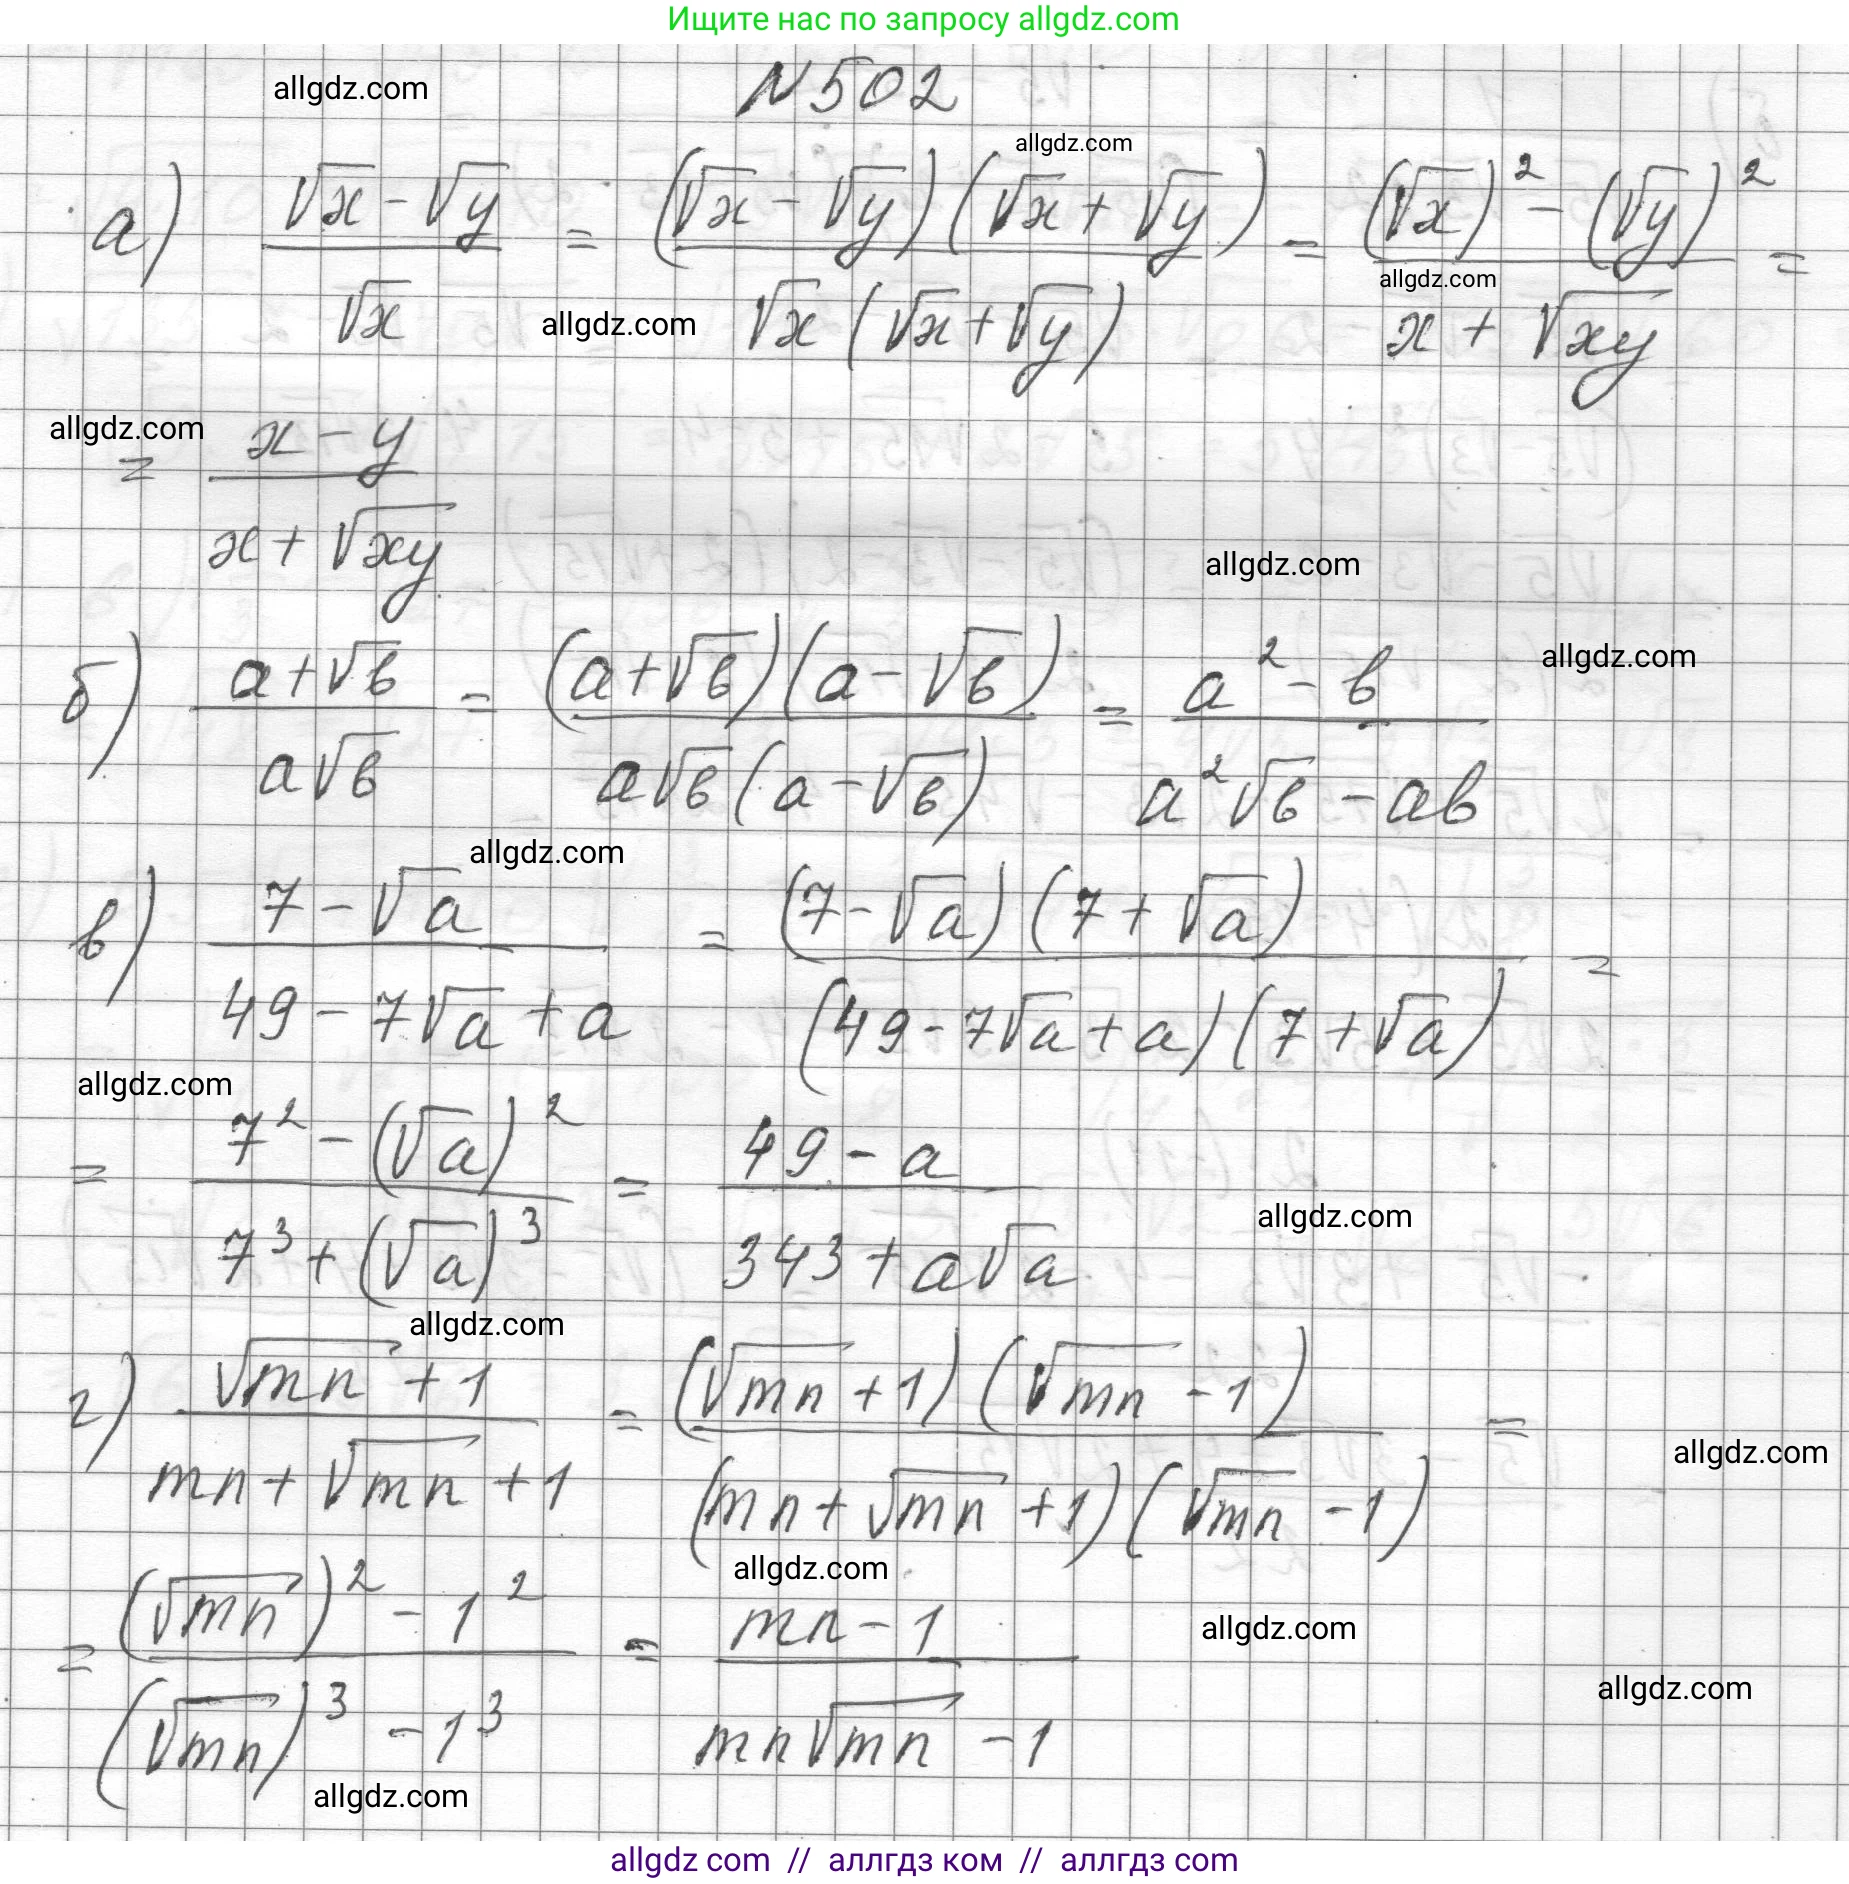 Ищите нас по запросу allgdz.com
allgdz.com
N502
allgdz.com
а) (√x - √y)/√x = ((√x - √y)(√x + √y))/(√x(√x + √y)) = ((√x)² - (√y)²)/(x + √xy) =
allgdz.com
allgdz.com
allgdz.com
= (x - y)/(x + √xy)
allgdz.com
б) (a + √b)/(a√b) = ((a + √b)(a - √b))/(a√b(a - √b)) = (a² - b)/(a²√b - ab)
allgdz.com
allgdz.com
в) (7 - √a)/(49 - 7√a + a) = ((7 - √a)(7 + √a))/((49 - 7√a + a)(7 + √a)) =
allgdz.com
= (7² - (√a)²)/(7³ + (√a)³) = (49 - a)/(343 + a√a)
allgdz.com
allgdz.com
г) (√mn + 1)/(mn + √mn + 1) = ((√mn + 1)(√mn - 1))/((mn + √mn + 1)(√mn - 1)) =
allgdz.com
allgdz.com
= ((√mn)² - 1²)/((√mn)³ - 1³) = (mn - 1)/(mn√mn - 1)
allgdz.com
allgdz.com
allgdz.com
allgdz com // аллгдз ком // аллгдз com